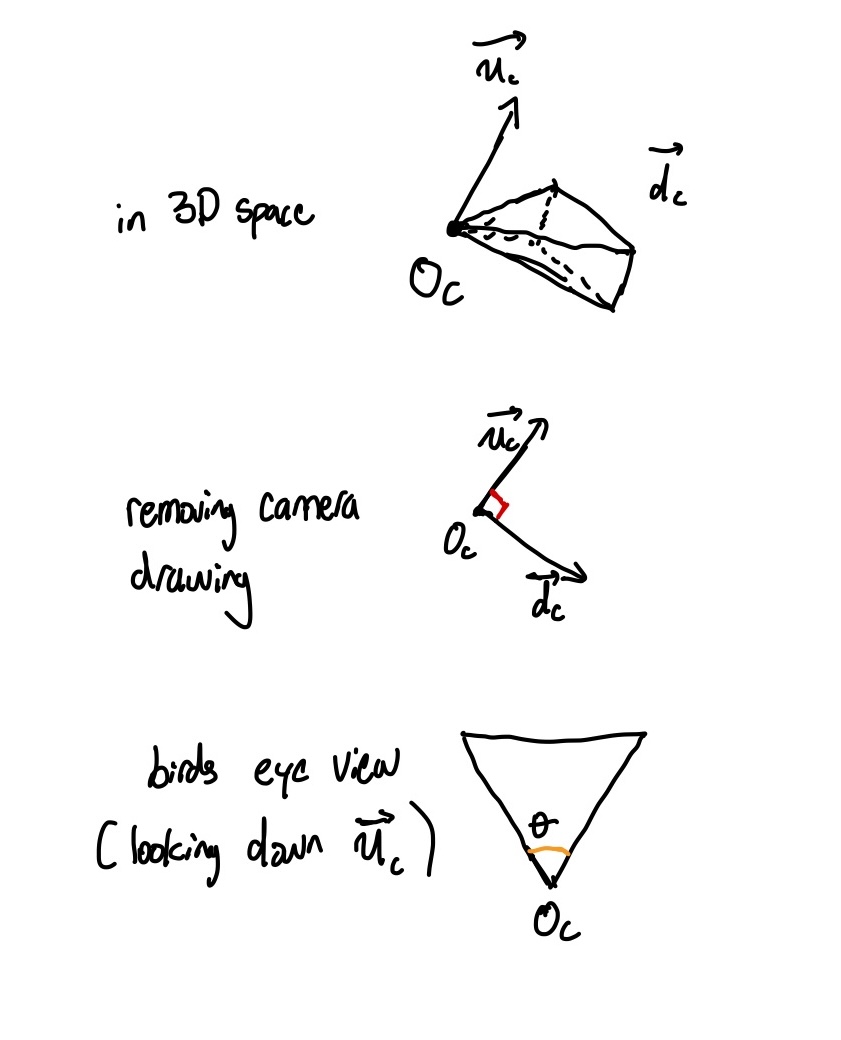 u⃗c
d⃗c
in 3D space
Oc
u⃗c
removing camera
Oc
drawing
d⃗c
birds eye view
θ
(looking down u⃗c)
Oc